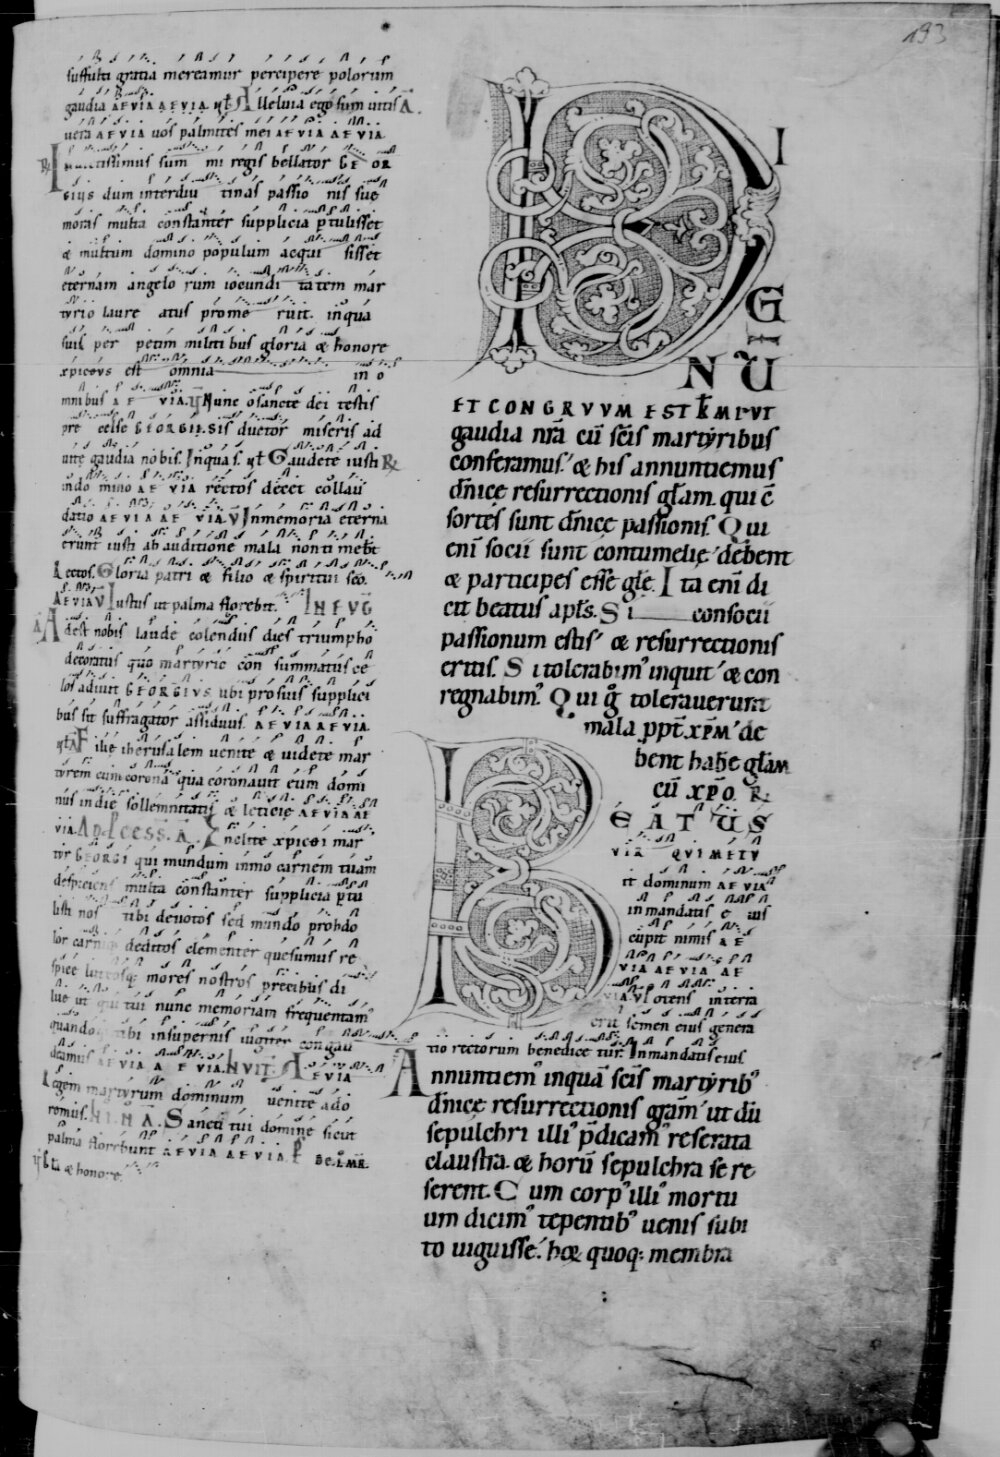 193
suffulti gratia mereamur percipere polorum
gaudia AEVIA AEVIA. Alleluia ego sum uitis A.
uera AEVIA uos palmites mei AEVIA AEVIA.
R Inuictissimus sum mi regis bellator GEOR
GIUS dum interdiu tinas passio nis sue
moras multa constanter supplicia ptulisset
& multum domino populum acqui sisset
eternam angelo rum iocundi tatem mar
tyrio laure atus prome ruit. inqua
suis per petim militi bus gloria & honore
xpicous est omnia in o
mnibus AE VIA. V Nunc o sancte dei testis
pre celse GEORGII. SIS ductor miseris ad
uite gaudia nobis. Inqua s. Gaudete iusti R
indo mino AE VIA rectos decet collau
datio AEVIA AE VIA. V In memoria eterna
erunt iusti ab auditione mala non ti mebt
Rectos. Gloria patri & filio & spiritui sco.
AEVIA V Iustus ut palma florebit. IN EVG
A Adest nobis laude colendus dies triumpho
decoratus quo martyrie con summatus ce
los adiuit GEORGIVS ubi pro suis supplici
bus sit suffragator assiduus. AEVIA AEVIA.
Filie iherusalem uenite & uidete mar
tyrem cum corona qua coronauit eum domi
nus in die sollemnitatis & leticie AEVIA AE
VIA. AD PCESS. A. Inclite xpicoi mar
tyr GEORGI qui mundum inmo carnem tuam
despiciens multa constanter supplicia ptu
listi nos tibi deuotos sed mundo prohdo
lor carnis deditos clementer quesumus re
spice luteosq; mores nostros precibus di
lue ut qui tui nunc memoriam frequentam'
quando tibi insupernis iugiter congau
deamus AEVIA AE VIA. INVIT. AEVIA
Regem martyrum dominum uenite ado
remus. IN I N A. Sancti tui domine sicut
palma florebunt AEVIA AEVIA. DE. I. MR.
gla & honore.
DI
G
NU
ET CONGRVVM EST FRM PVT
gaudia nra cu scis martyribus
conferamus.' & his annuntiemus
dnice resurrectionis glam. qui c
sortes sunt dnice passionis. Qui
eni socii sunt contumelie' debent
& participes esse gle. Ita eni di
cit beatus apls. Si consocii
passionum estis' & resurrectionis
eritis. Si tolerabim' inquit' & con
regnabim'. Qui g tolerauerunt
mala ppt xpm' de
bent habe glam
cu xpo. R
BEATUS
VIR QVI METV
it dominum AEVIA
in mandatis e ius
cupit nimis AE
VIA AEVIA AE
VIA. V Potens in terra
erit semen eius genera
tio rectorum benedice tur. In mandatis eius
Annuntiem' inqua scis martyrib'
dnice resurrectionis gram' ut du
sepulchri illi' pdicam' reserata
claustra. & horu sepulchra se re
serent. Cum corp' illi' mortu
um dicim' tepentib' uenis subi
to uiguisse.' hec quoq; membra